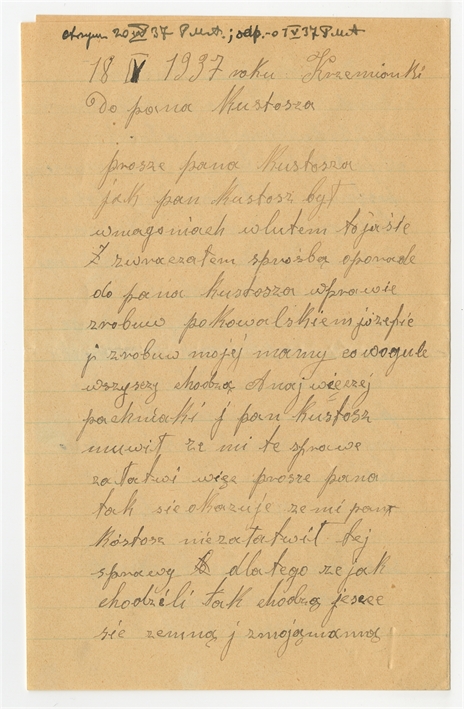 otrzym 20 IV 37 PMA.; odp. 01 V 37 PMA
18 IV 1937 roku Krzemionki
Do pana Kustosza
prosze pana Kustosza
jak pan Kustosz był
wmagoniach wlutem tojaśie
Z zwraczałem sprośbą oporade
do pana kustosza wprawie
zrobuw pokowalskiem józefie
j zrobuw mojej mamy cowogule
wszyszy chodzą Anaj więczej
pachniaki j pan kustosz
muwił ze mi te sprawe
załatwi więc prosze pana
tak sieokazuje zemi pan
Kóstosz niezałatwił tej
sprawy dlatego zejak
chodzili tak chodzą jescee
sie zemną j zmojąmamą